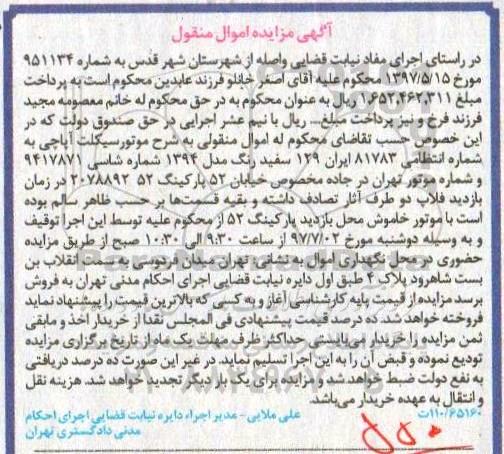 آگهی مزایده اموال منقول
در راستای اجرای مفاد نیابت قضایی واصله از شهرستان شهر قدس به شماره ۹۵۱۱۳۴
مورخ ۱۳۹۷/۵/۱۵ محکوم علیه آقای اصغر خانلو فرزند عابدین محکوم است به پرداخت
مبلغ ۱,۶۵۲,۴۶۲,۳۱۱ ریال به عنوان محکوم به در حق محکوم له خانم معصومه مجید
فرزند فرخ و نیز پرداخت مبلغ... ریال با نیم عشر اجرایی در حق صندوق دولت که در
این خصوص حسب تقاضای محکوم له اموال منقولی به شرح موتورسیکلت آپاچی به
شماره انتظامی ۸۱۷۸۳ ایران ۱۲۹ سفید رنگ مدل ۱۳۹۴ شماره شاسی ۹۴۱۷۸۷۱
و شماره موتور تهران در جاده مخصوص خیابان ۵۲ پارکینگ ۵۲ ۲۰۷۸۸۹۲ در زمان
بازدید فلاپ دو طرف آثار تصادف داشته و بقیه قسمت‌ها بر حسب ظاهر سالم بوده
است با موتور خاموش محل بازدید پارکینگ ۵۲ از محکوم علیه توسط این اجرا توقیف
و به وسیله دوشنبه مورخ ۹۷/۷/۰۲ از ساعت ۹:۳۰ الی ۱۰:۳۰ صبح از طریق مزایده
حضوری در محل نگهداری اموال به نشانی: تهران میدان فردوسی به سمت انقلاب بن
بست شاهرود پلاک ۴ طبق اول دایره نیابت قضایی اجرای احکام مدنی تهران به فروش
برسد مزایده از قیمت پایه کارشناسی آغاز و به کسی که بالاترین قیمت را پیشنهاد نماید
فروخته خواهد شد. ده درصد قیمت پیشنهادی فی المجلس نقدا از خریدار اخذ و مابقی
ثمن مزایده را خریدار می‌بایستی حداکثر ظرف مهلت یک ماه از تاریخ برگزاری مزایده
تودیع نموده و قبض آن را به این اجرا تسلیم نماید. در غیر این صورت ده درصد دریافتی
به نفع دولت ضبط خواهد شد و مزایده برای یک بار دیگر تجدید خواهد شد. هزینه نقل
و انتقال به عهده خریدار می‌باشد.
۱۱۰/۶۵۱۶۰ت علی ملایی - مدیر اجراء دایره نیابت قضایی اجرای احکام
مدنی دادگستری تهران